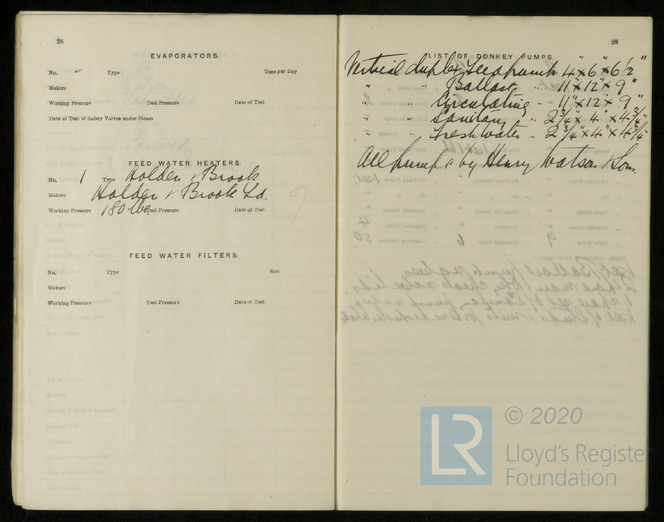 28
EVAPORATORS.
No. Type Tons per Day
Makers
Working Pressure Test Pressure Date of Test
Date of Test of Safety Valves under Steam
FEED WATER HEATERS.
No. 1 Type Holden & Brook
Makers Holden & Brook Ld.
Working Pressure 180 lbs. Test Pressure Date of Test
FEED WATER FILTERS.
No. Type Size
Makers
Working Pressure Test Pressure Date of Test
29
LIST OF DONKEY PUMPS.
Vertical duplex Feed pump 4" x 6" x 6 1/2"
" " Ballast " 11" x 12" x 9"
" " Circulating " 11" x 12" x 9"
" " Sanitary " 2 3/4" x 4" x 4 3/4"
" " Fresh water " 2 3/4" x 4" x 4 3/4"
All pumps by Henry Watson & Son.
LR © 2020
Lloyd's Register
Foundation